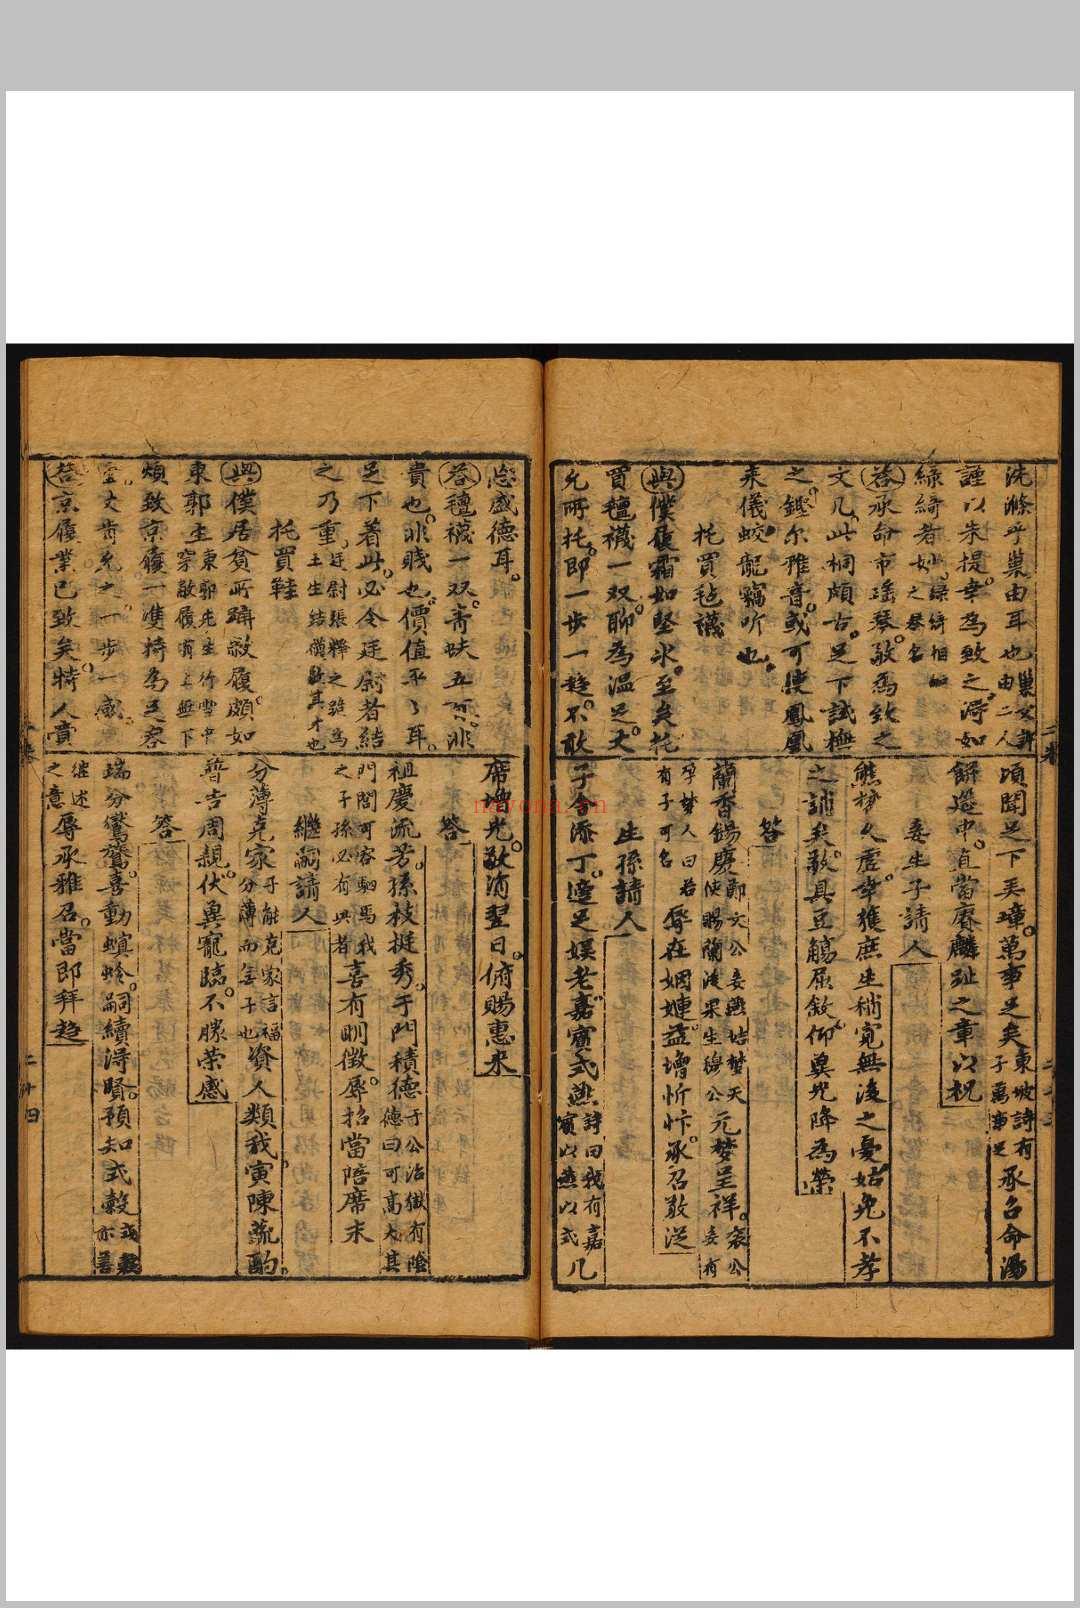 洗滌乎巢由耳也巢父許由二人
謹以朱提幸為致之得如
綠綺者妙綠綺相如之琴名
答承命市瑤琴敬為致之
文几此桐頗古足下試極
之鏗尔雅音或可使鳳凰
来儀蛟龍竊听也
托買毡襪
與僕履霜如堅氷至矣托
買氊襪一双聊為溫足大
允所托即一步一趋不敢
頃聞足下弄璋萬事足矣東坡詩有子萬事足承召命湯
餅筵中直當賡麟趾之章以祝
妾生子請人
熊梦久虛幸獲庶生稍寬無後之憂姑免不孝
之誚矣敬具豆觴屈敘仰冀光降為榮
答
蘭香錫慶鄭文公妾燕姞梦天使賜蘭後果生穆公元梦呈祥
孕梦人曰若有子可名辱在姻婣益增忻忭承召敬從
生孫請人
子舍添丁適足娱老嘉賓式燕詩曰我有嘉賓以燕以式几
忘感德耳
答氊襪一双青蚨五百非
貴也非賤也價值平々耳
足下着此必令廷尉者結
之乃重廷尉張釋之跪為王生結襪
托買鞋
與僕居貧所躡敝履頗如
東郭生東郭先生行雪中穿敝履有上無下
煩致京履一準持為足容
丈肯允之一步一感
答京履業已致矣特人賣
席塊光敬消翌日俯賜惠来
答
祖慶流芳孫枝挺秀于門積德于公治獄有陰德曰可高大其
門閭可容駟馬我之子孫必有興者喜有明徵辱招當陪席末
繼嗣請人
分薄克家子能克家言福分薄而無子也資人類我寅陳蔬酌
普告周親伏冀寵臨不勝荣感
答
瑞分鸑鷟喜動螟蛉嗣續得賢預知式穀
继述之意辱承雅召當即拜趋
二十四